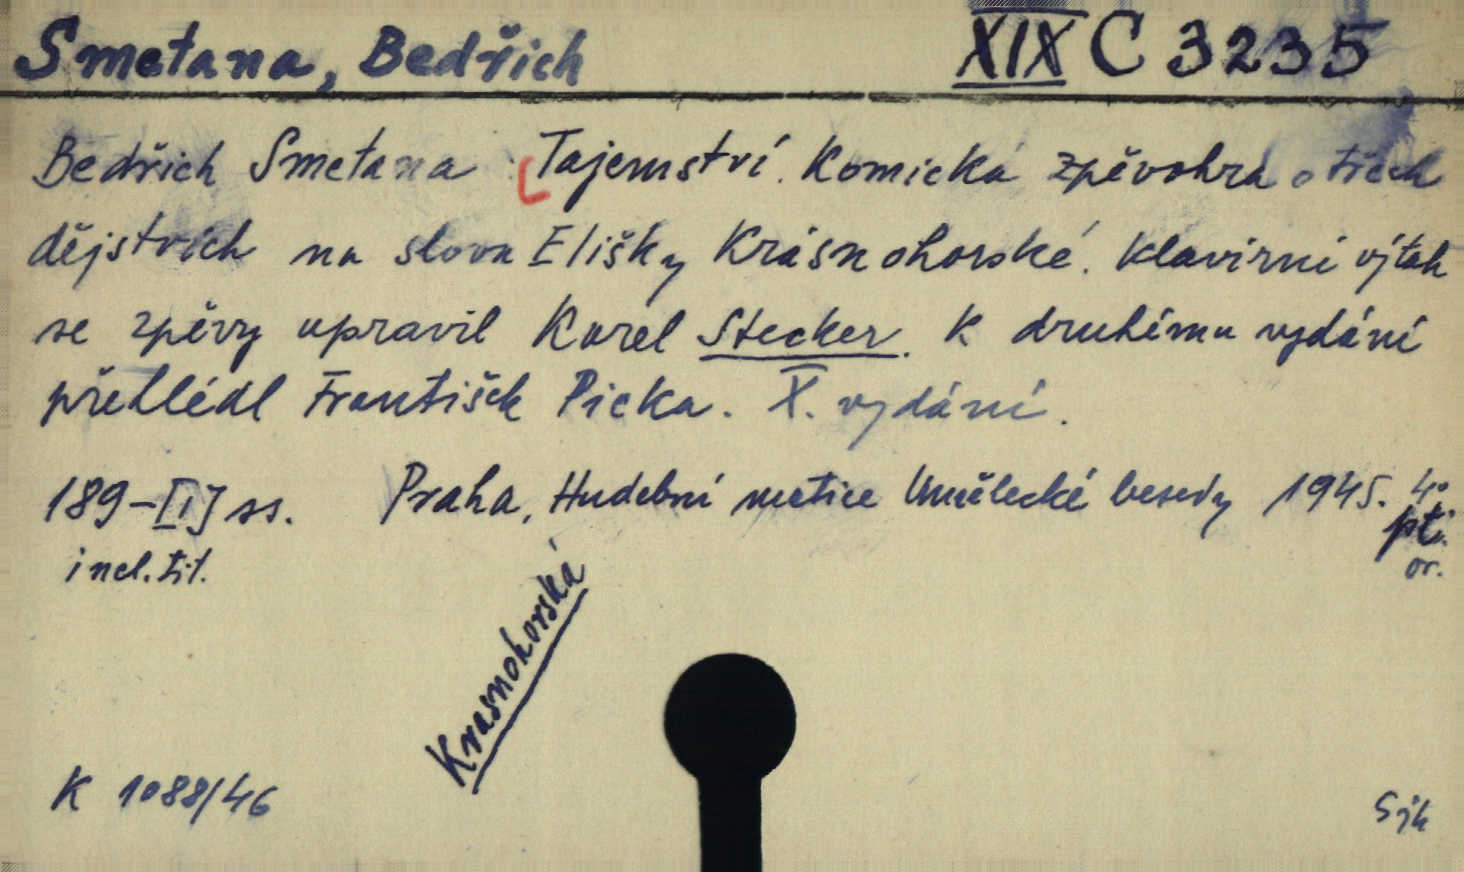 Smetana, Bedřich XIX C 3235
Bedřich Smetana: Tajemství. Komická zpěvohra o třech
dějstvích na slova Elišky Krásnohorské. Klavírní výtah
se zpěvy upravil Karel Stecker. K druhému vydání
přehlédl František Picka. X. vydání.
189-[1] ss. Praha, Hudební matice Umělecké besedy 1945. 4°
incl. tit. př.
or.
Krasnohorská
K 1088/46
Sjk